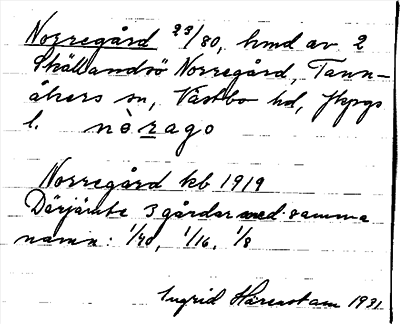 Norregård 23/80, hmd av 2
Skällandsö Norregård, Tann-
åkers sn, Västbo hd, Jkpgs
l. nòrago
Norregård kb 1919
Därjämte 3 gårdar med samma
namn: 1/40, 1/16, 1/8
Ingrid 1931